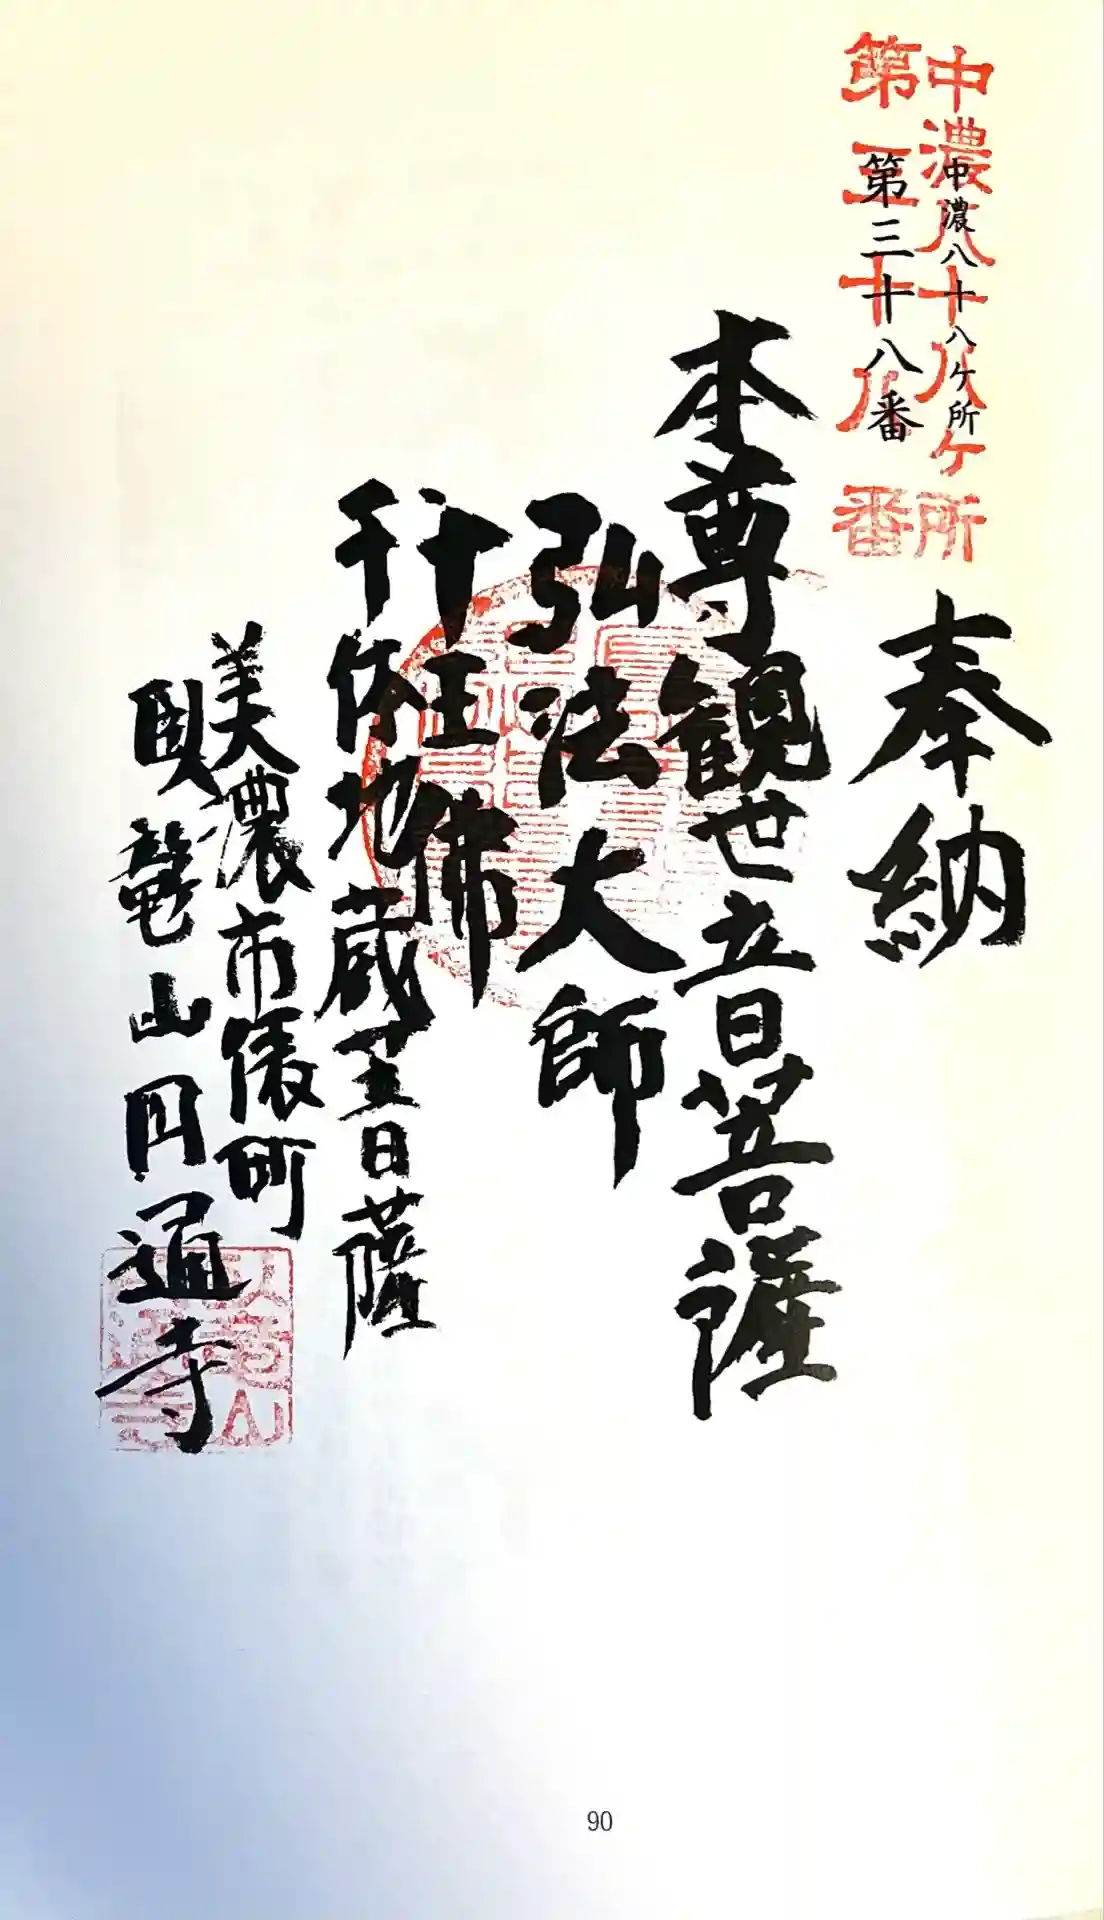 中濃八十八ケ所
第三十八番
中濃八十八ヶ所
第三十八番
奉納
本尊観世音菩薩
弘法大師
十王佛
千体地蔵菩薩
美濃市俵町
臥竜山円通寺
90